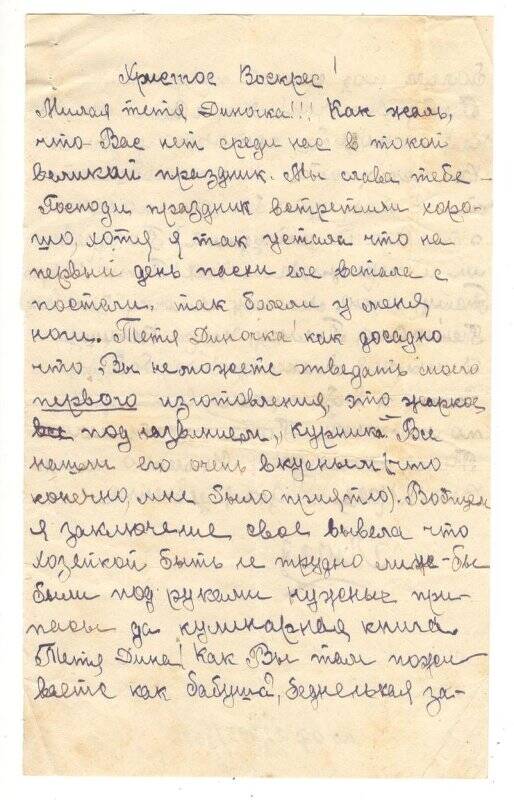 Христос Воскрес!
Милая тетя Диночка!!! Как жаль,
что Вас нет среди нас в такой
великий праздник. Мы слава тебе
Господи праздник встретили хоро-
шо, хотя я так устала что на
первый день пасхи еле встала с
постели, так болели у меня
ноги. Тетя Диночка! как досадно
что Вы неможете отведать моего
первого изготовления, это жаркое
под названием „Курника“ Все
нашли его очень вкусным (что
конечно, мне было приятно). Вобщем
я заключение свое вывела что
хозейкой быть не трудно лишь-бы
были под руками нужные при-
пасы да кулинарная книга.
Тетя Дина! Как Вы там пожи-
ваете как бабуша?, бедненькая за-